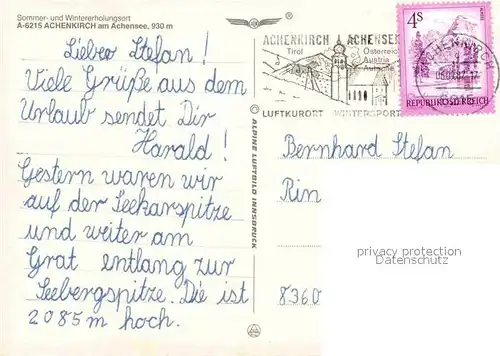 Sommer- und Wintererholungsort
A-6215 ACHENKIRCH am Achensee, 930 m
®
Lieber Stefan!
Viele Grüße aus dem
Urlaub sendet Dir
Harald!
Gestern waren wir
auf der Seekarspitze
und weiter am
Grat entlang zur
Seebergspitze. Die ist
2085 m hoch.
© ALPINE LUFTBILD INNSBRUCK
ACHENKIRCH ACHENSEE
Tirol Österreich
Austria
Autriche
LUFTKURORT WINTERSPORT
4S
REPUBLIK ÖSTERREICH
ACHENKIRCH
6215
Bernhard Stefan
Rin
privacy protection
Datenschutz
8360